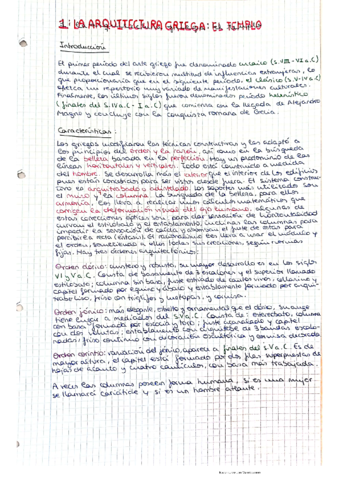 1. LA ARQUITECTURA GRIEGA: EL TEMPLO
Introducción
El primer periodo del arte griego fue denominado arcaico (s. VIII - VI a.C)
durante el cual se recibieron multitud de influencias extranjeras, lo
que proporcionaría que en el siguiente periodo, el clásico (s. V-IV a.C)
ofrezca un repertorio muy variado de manifestaciones culturales.
Finalmente, los últimos siglos fueron denominados periodo helenístico
(finales del S.IV a.C - I a.C) que comienza con la llegada de Alejandro
Magno y concluye con la conquista romana de Grecia.
Características
Los griegos modificaron las técnicas constructivas y las adaptó a
los principios del orden y la razón, así como en la búsqueda
de la belleza basada en la perfección. Hay un predominio de las
líneas horizontales y verticales. Todo está construido a medida
del hombre. Se desarrolla más el exterior que el interior de los edificios
pues están construidos para ser vistos desde fuera. El sistema construc
tivo es arquitrabado y adintelado. Los soportes más utilizados son
el muro y la columna. La búsqueda de la belleza, para ellos
armonía, los lleva a realizar unos cálculos matemáticos que
corrigen la deformación visual del ojo humano. Algunas de
estas correcciones ópticas son: para dar sensación de horizontalidad
curvan el estilóbato y el entablamento, inclinan las columnas para
impedir la sensación de caída y engrosan el fuste de estas para
percibirlas rectas (éntasis). El racionalismo les lleva a usar el módulo y
el orden, sometiendo a ellos todas sus creaciones, según normas
fijas. Hay tres órdenes arquitectónicos:
Orden dórico: austero y robusto, su mayor desarrollo es en los siglos
VI y V a.C. Consta de basamento de 3 escalones y el superior llamado
estilóbato; columna, sin basa, fuste estriado de cantos vivos, collarino y
capitel formado por equino y ábaco y entablamento formado por arqui-
trabe liso, friso con triglifos y metopas, y cornisa.
Orden jónico: más esbelto, etéreo y ornamental que el dórico. Su auge
tiene lugar a mediados del S.V a.C. Consta de: estereóbato, columna
con basa formada por escocia y toro, fuste acanalado y capitel
con dos volutas; entablamento con arquitrabe de 3 bandas escalo-
nadas, friso continuo con decoración escultórica y cornisa decorada
Orden corintio: variación del jónico, aparece a finales del S.V a.C. Es de
mayor altura, el capitel está formado por dos filas superpuestas de
hojas de acanto y cuatro caulículos, con basa más trabajada.
A veces las columnas poseen forma humana, si es una mujer
se llamará cariátide y si es un hombre atlante.